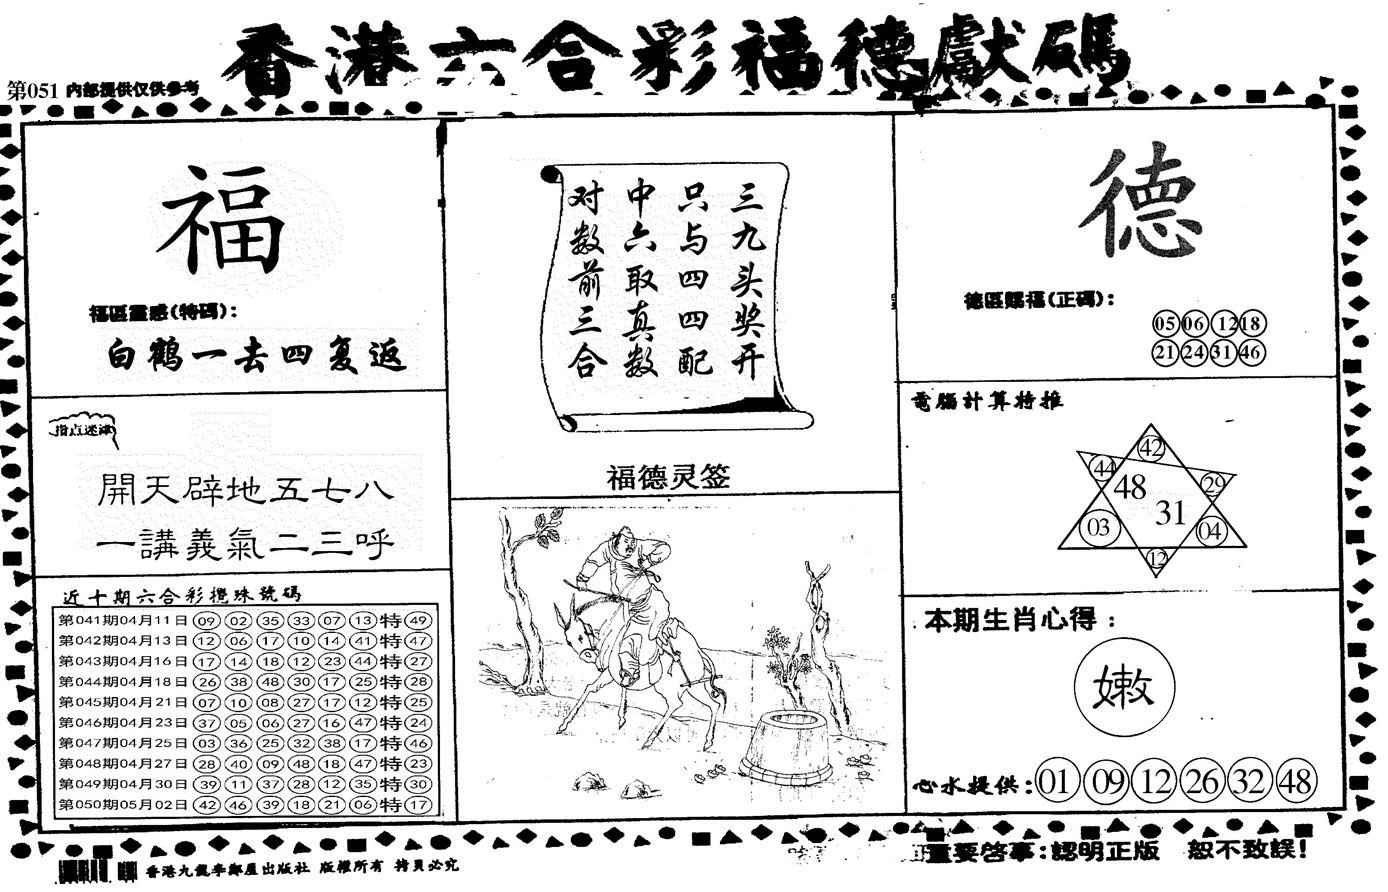 香港六合彩福德獻碼
第051 内部提供仅供参考
福
福區靈感(特碼):
白鶴一去四复返
指点迷津
開天辟地五七八
一講義氣二三呼
近十期六合彩攪珠號碼
第041期04月11日 09 02 35 33 07 13 特 49
第042期04月13日 12 06 17 10 14 41 特 47
第043期04月16日 17 14 18 12 23 44 特 27
第044期04月18日 26 38 48 30 17 25 特 28
第045期04月21日 07 10 08 27 17 12 特 25
第046期04月23日 37 05 06 27 16 47 特 24
第047期04月25日 03 36 25 32 38 17 特 46
第048期04月27日 28 40 09 48 18 47 特 23
第049期04月30日 39 11 37 28 12 35 特 30
第050期05月02日 42 46 39 18 21 06 特 17
三九头奖开
只与四四配
中六取真数
对数前三合
福德灵签
德
德區賜福(正碼):
05 06 12 18
21 24 31 46
電腦計算特推
42
44 29
48
31
03 04
12
本期生肖心得:
嫩
心水提供: 01 09 12 26 32 48
重要啓事:認明正版 恕不致誤!
版權所有 拷貝必究